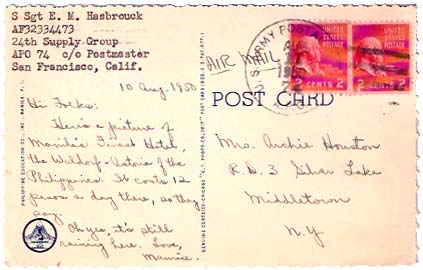 S Sgt E. M. Hasbrouck
AF32334473
24th Supply Group
APO 74 c/o Postmaster
San Francisco, Calif.
10 Aug. 1950
Hi Folks:
Here's a picture of
Manila's Finest Hotel,
the Waldorf-Astoria of the
Philippines. It costs 12
pesos a day there, so they
say.
Oh yes, it's still
raining here. Love,
Maurice.
PHILIPPINE EDUCATION CO., INC., MANILA, P. I.
GENUINE CURTEICH-CHICAGO "C.T. PHOTO-COLORIT" POST CARD (REG. U.S. PAT. OFF.)
AIR MAIL
U.S. ARMY POSTAL
AUG
1950
UNITED STATES POSTAGE
UNITED STATES POSTAGE
2 CENTS 2
2
POST CARD
Mrs. Archie Houston
R.D. 3 Silver Lake
Middletown
N.Y.